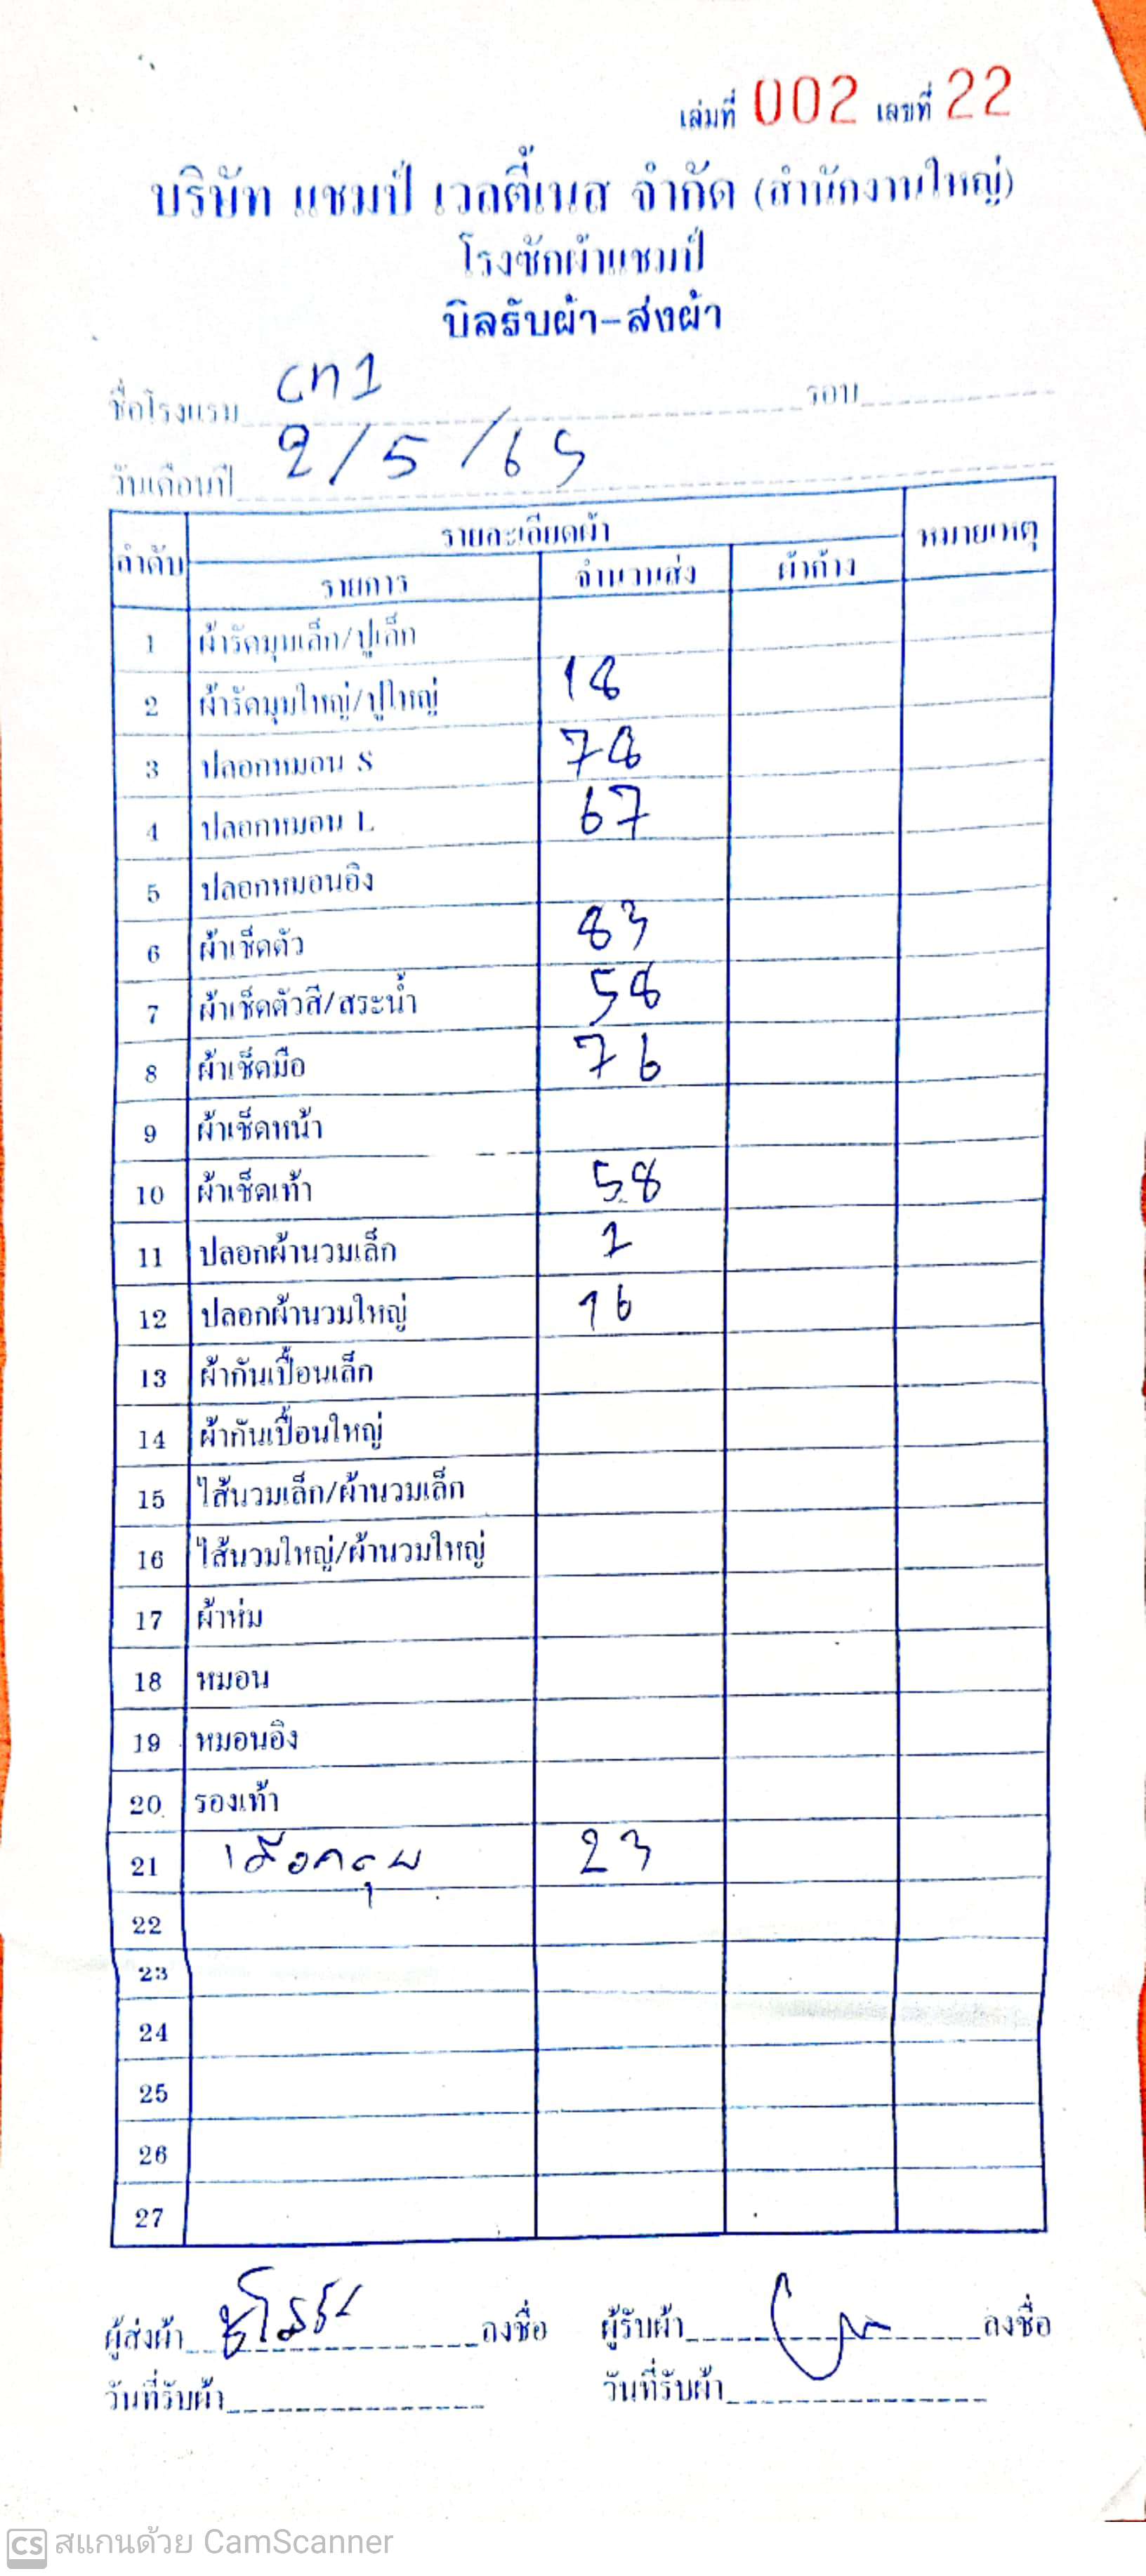 เล่มที่ 002 เลขที่ 22
บริษัท แชมป์ เวลตี้เนส จำกัด (สำนักงานใหญ่)
โรงซักผ้าแชมป์
บิลรับผ้า-ส่งผ้า
ชื่อโรงแรม CM1 รอบ
วันเดือนปี 2/5/65
ลำดับ รายละเอียดผ้า หมายเหตุ
รายการ จำนวนส่ง ผ้าค้าง
1 ผ้ารัดมุมเล็ก/ปูเล็ก
2 ผ้ารัดมุมใหญ่/ปูใหญ่ 18
3 ปลอกหมอน S 78
4 ปลอกหมอน L 67
5 ปลอกหมอนอิง
6 ผ้าเช็ดตัว 83
7 ผ้าเช็ดตัวสี/สระน้ำ 58
8 ผ้าเช็ดมือ 76
9 ผ้าเช็ดหน้า
10 ผ้าเช็ดเท้า 58
11 ปลอกผ้านวมเล็ก 1
12 ปลอกผ้านวมใหญ่ 16
13 ผ้ากันเปื้อนเล็ก
14 ผ้ากันเปื้อนใหญ่
15 ไส้นวมเล็ก/ผ้านวมเล็ก
16 ไส้นวมใหญ่/ผ้านวมใหญ่
17 ผ้าห่ม
18 หมอน
19 หมอนอิง
20 รองเท้า
21 เสื้อคลุม 23
22
23
24
25
26
27
ผู้ส่งผ้า ลงชื่อ ผู้รับผ้า ลงชื่อ
วันที่รับผ้า วันที่รับผ้า
CS สแกนด้วย CamScanner